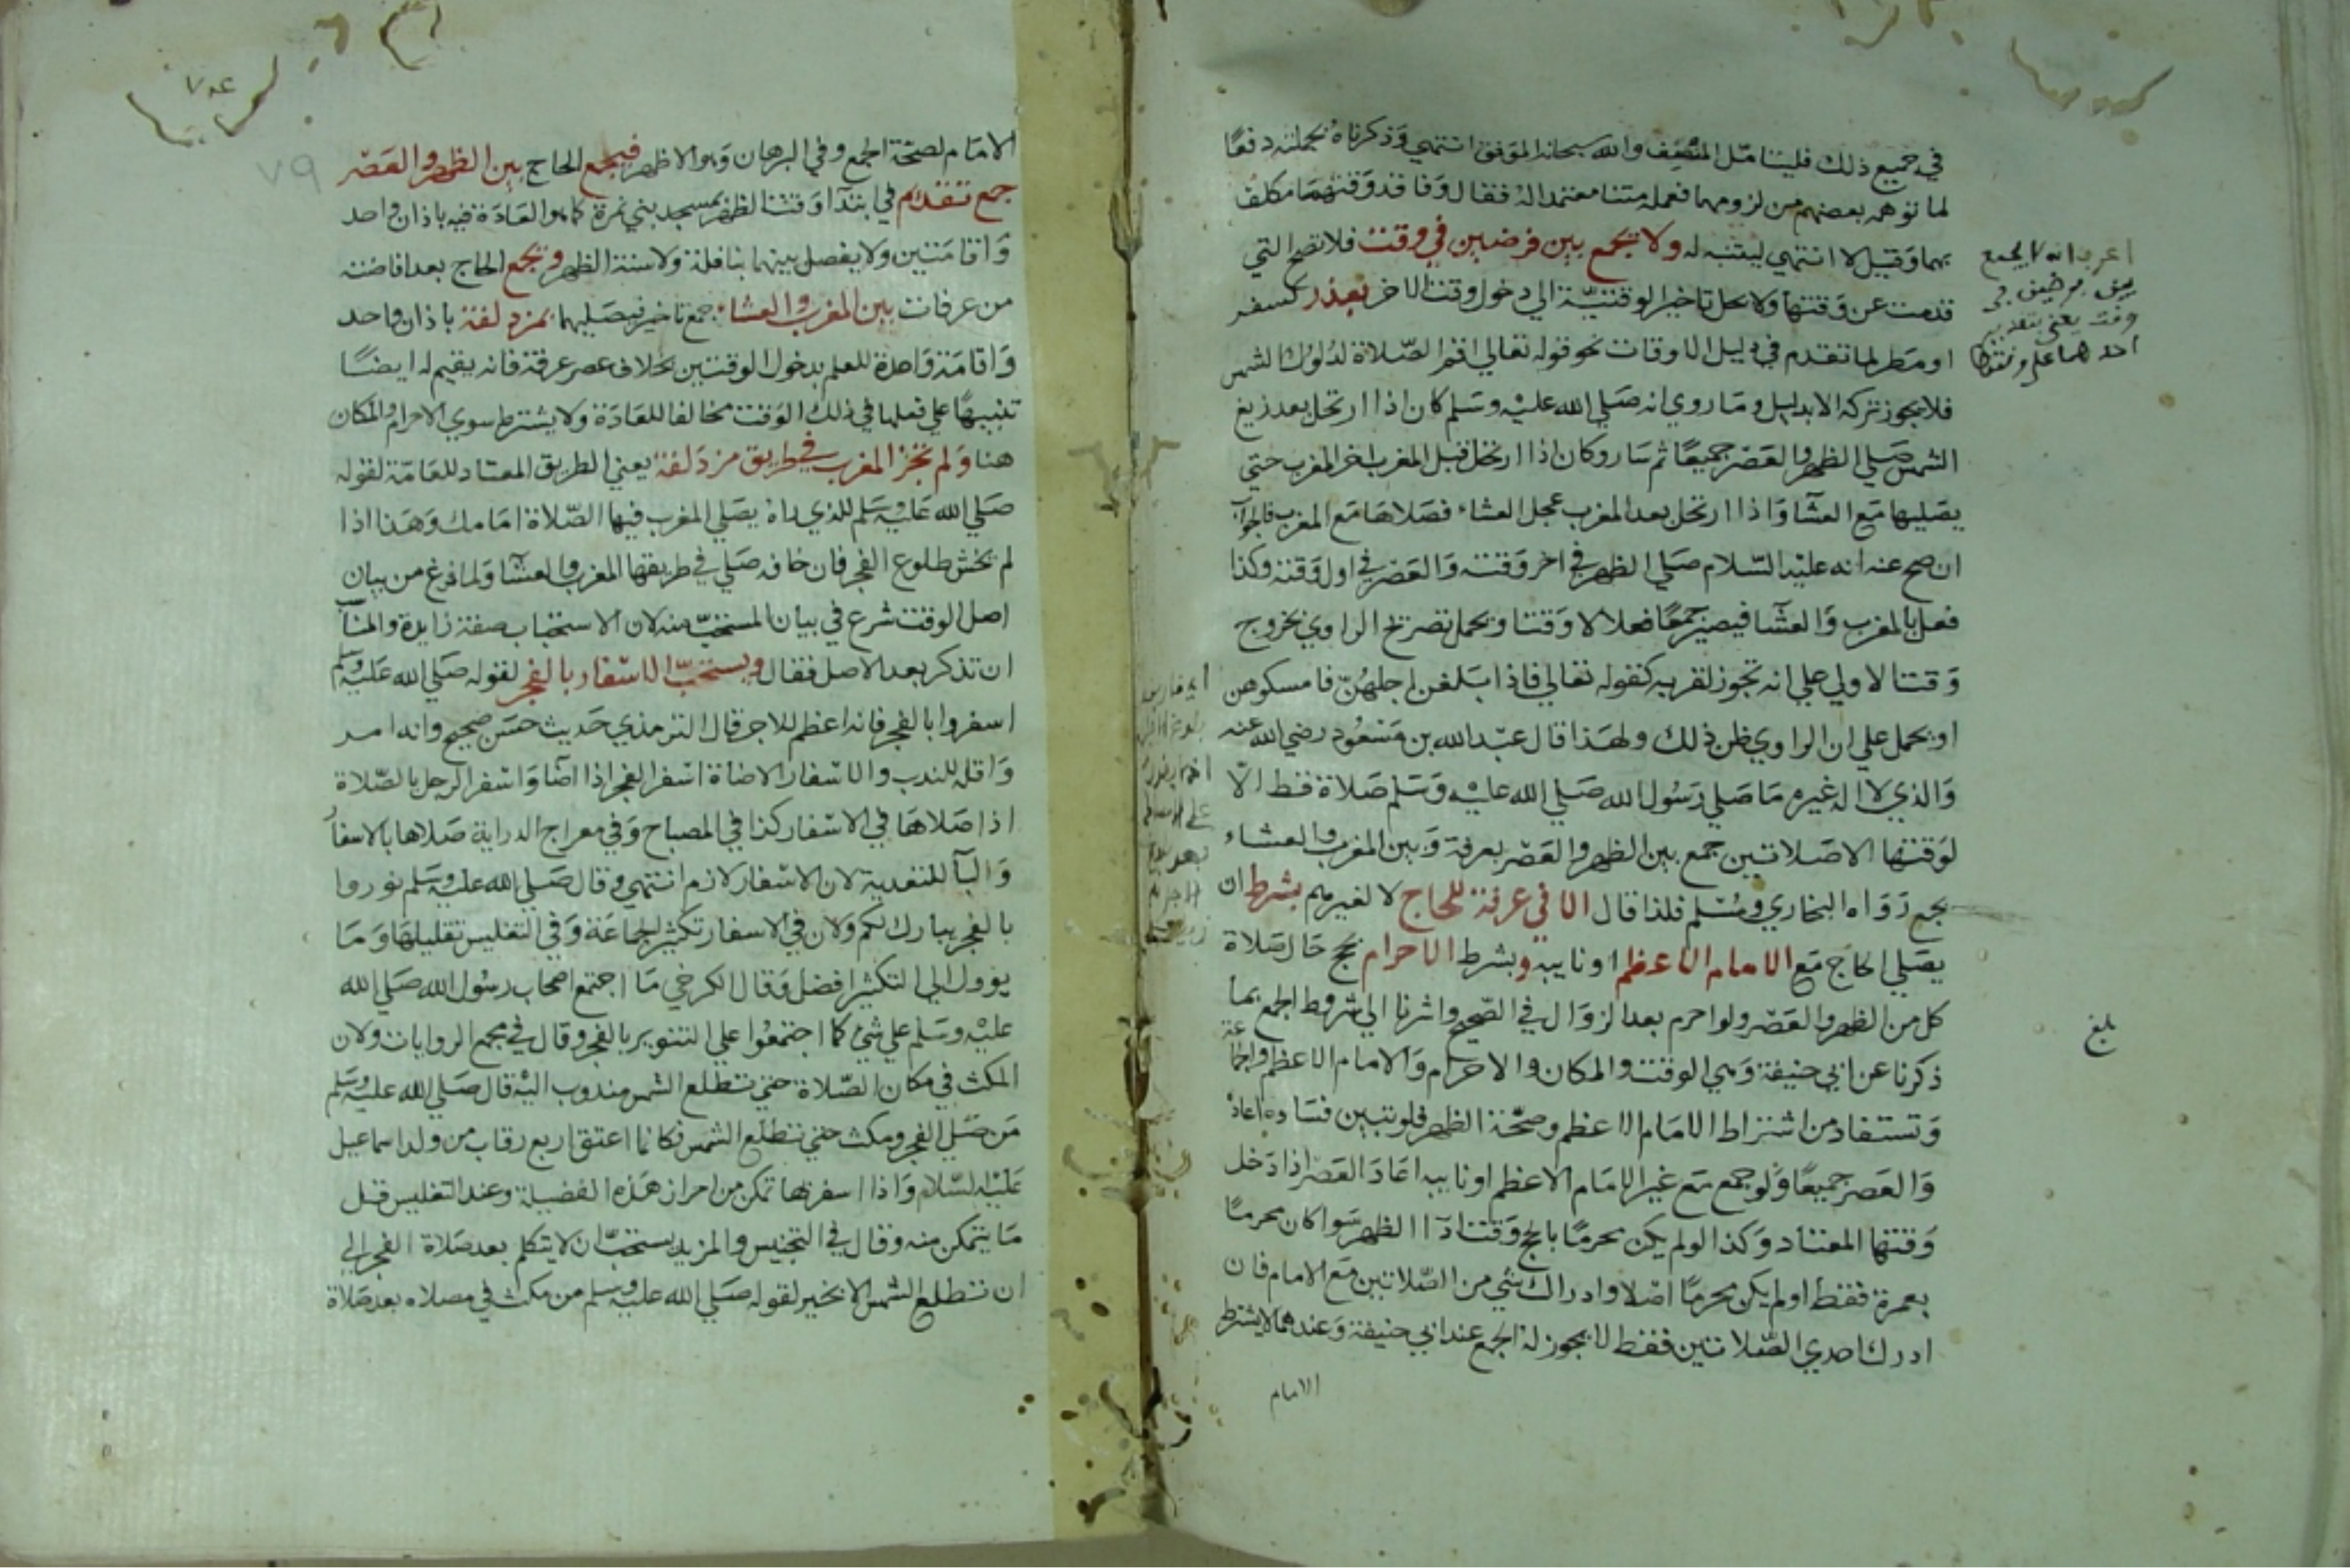 في جميع ذلك فليتامل المنصف والله سبحانه الموفق انتهي وذكرناه بجملته دفعًا
لما توهمه بعضهم من لزومهما فعمله متنا معتمدا له فقال وفاقد وقتهما مكلف
بهما وقيل لا انتهي ليتنبه له ولا يجمع بين فرضين في وقت فلا تصح التي
قدمت عن وقتها ولا يحل تاخير الوقتية الي دخول وقت الاخر بعذر كسفر
او مطر لما تقدم في دليل الاوقات نحو قوله تعالي اقم الصلاة لدلوك الشمس
فلا يجوز تركه الا بدليل وما روي انه صلي الله عليه وسلم كان اذا ارتحل بعد زيغ
الشمس صلي الظهر والعصر جميعًا ثم سار وكان اذا ارتحل قبل المغرب اخر المغرب حتي
يصليها مع العشا واذا ارتحل بعد المغرب عجل العشاء فصلاها مع المغرب فالجواب
ان صح عنه انه عليه السلام صلي الظهر في اخر وقته والعصر في اول وقته وكذا
فعل بالمغرب والعشا فيصير جمعًا فعلا لا وقتا ويحمل تصريح الراوي بخروج
وقت الاولي علي انه تجوز لقربه كقوله تعالي فاذا بلغن اجلهن فامسكوهن
او يحمل علي ان الراوي ظن ذلك ولهذا قال عبد الله بن مسعود رضي الله عنه
والذي لا اله غيره ما صلي رسول الله صلي الله عليه وسلم صلاة قط الا
لوقتها الا صلاتين جمع بين الظهر والعصر بعرفة وبين المغرب والعشاء
بجمع رواه البخاري ومسلم فلذا قال الا في عرفة للحاج لا لغيرهم بشرط ان
يصلي الحاج مع الامام الاعظم او نايبه وبشرط الاحرام بحج حال صلاة
كل من الظهر والعصر ولو احرم بعد الزوال في الصحيح واشرنا الي شروط الجمع بما
ذكرنا عن ابي حنيفة وهي الوقت والمكان والاحرام والامام الاعظم والجماعة
وتستفاد من اشتراط الامام الاعظم وصحة الظهر فلو تبين فساده اعاده
والعصر جميعًا ولو جمع مع غير الامام الاعظم او نايبه اعاد العصر اذا دخل
وقتها المعتاد وكذا لو لم يكن محرمًا بالحج وقت ادآ الظهر سوا كان محرمًا
بعمرة فقط او لم يكن محرمًا اصلا وادراك شي من الصلاتين مع الامام فان
ادرك احدي الصلاتين فقط لا يجوز له الجمع عند ابي حنيفة وعندهما لا يشترط
الامام
انه لا يجمع
بين فرضين في
وقت يعني بتقديم
احدهما علي وقتها
بلغ
٧٩
الامام لصحة الجمع وفي البرهان وهو الاظهر فيجمع الحاج بين الظهر والعصر
جمع تقديم في ابتدآ وقت الظهر بمسجد بني نمرة كما هو العادة فيه باذان واحد
واقامتين ولا يفصل بينهما بنافلة ولا سنة الظهر ويجمع الحاج بعد افاضته
من عرفات بين المغرب والعشاء جمع تاخير فيصليهما بمزدلفة باذان واحد
واقامة واحدة للعلم بدخول الوقتين بخلاف عصر عرفة فانه يقيم له ايضًا
تنبيهًا علي فعلها في ذلك الوقت مخالفا للعادة ولا يشترط سوي الاحرام والمكان
هنا ولم تجز المغرب في طريق مزدلفة يعني الطريق المعتاد للعامة لقوله
صلي الله عليه وسلم للذي راه يصلي المغرب فيها الصلاة امامك وهذا اذا
لم يخش طلوع الفجر فان خافه صلي في طريقها المغرب والعشا ولما فرغ من بيان
اصل الوقت شرع في بيان المستحب منه لان الاستحباب صفة زايدة والمناسب
ان تذكر بعد الاصل فقال ويستحب الاسفار بالفجر لقوله صلي الله عليه وسلم
اسفروا بالفجر فانه اعظم للاجر قال الترمذي حديث حسن صحيح وانه امر
واقله للندب والاسفار الاضاة اسفر الفجر اذا اضا واسفر الرجل بالصلاة
اذا صلاها في الاسفار كذا في المصباح وفي معراج الدراية صلاها بالاسفار
والبآ للتعدية لان الاسفار لازم انتهي وقال صلي الله عليه وسلم نوروا
بالفجر يبارك لكم ولان في الاسفار تكثير الجماعة وفي التغليس تقليلها وما
يؤول الي التكثير افضل وقال الكرخي ما اجتمع اصحاب رسول الله صلي الله
عليه وسلم علي شي كما اجتمعوا علي التنوير بالفجر وقال في مجمع الروايات ولان
المكث في مكان الصلاة حتي تطلع الشمس مندوب اليه قال صلي الله عليه وسلم
من صلي الفجر ومكث حتي تطلع الشمس فكانما اعتق اربع رقاب من ولد اسماعيل
عليه السلام واذا اسفر بها تمكن من احراز هذه الفضيلة وعند التغليس قل
ما يتمكن منه وقال في التجنيس والمزيد يستحب ان لا يتكلم بعد صلاة الفجر الي
ان تطلع الشمس الا بخير لقوله صلي الله عليه وسلم من مكث في مصلاه بعد صلاة